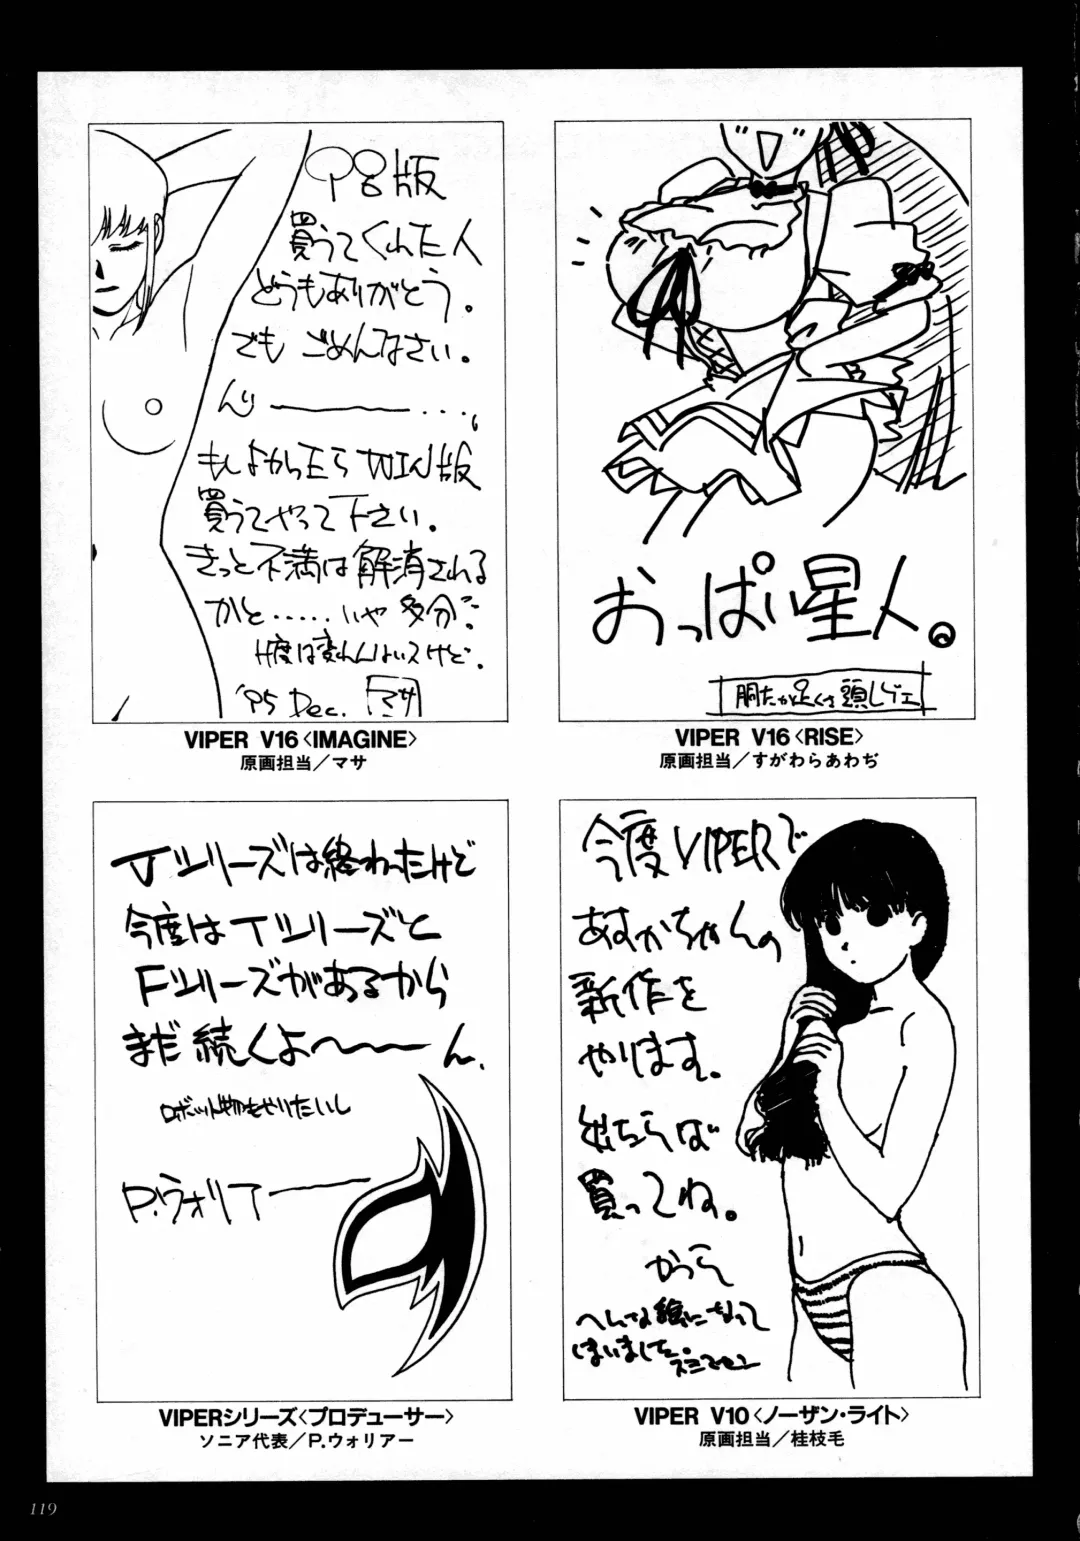 98版
買うてくれた人
どうもありがとう。
でも ごめんなさい。
んり———・・・、
もしよかったら WIN版
買うてやって下さい。
きっと不満は解消される
かと・・・・・いや 多分。
'95 Dec. マサ
VIPER V16〈IMAGINE〉
原画担当／マサ
おっぱい星人。
VIPER V16〈RISE〉
原画担当／すがわらあわぢ
Jシリーズは終わったけど
今度はTシリーズと
Fシリーズがあるから
まだ続くよ〜〜〜ん、
ロボット物もやりたいし
P.ウォリアー——
VIPERシリーズ〈プロデューサー〉
ソニア代表／P.ウォリアー
今度VIPERで
あすかちゃんの
新作を
やります。
出たらば
買ってね。
かつら
へんな絵になって
しまいました。スミマセン
VIPER V10〈ノーザン・ライト〉
原画担当／桂枝毛
119